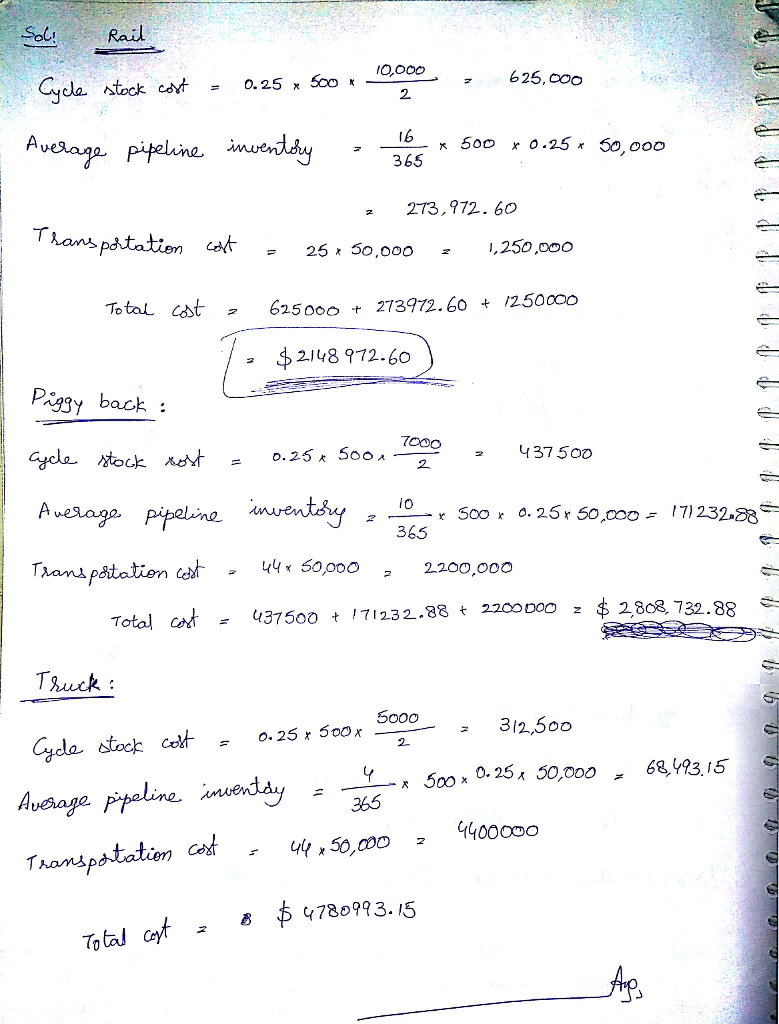 Sol: Rail
Cycle stock cost = 0.25 x 500 x 10,000 / 2 = 625,000
Average pipeline inventory = 16 / 365 x 500 x 0.25 x 50,000
= 273,972.60
Transportation cost = 25 x 50,000 = 1,250,000
Total cost = 625000 + 273972.60 + 1250000
= $2148972.60
Piggy back :
Cycle stock cost = 0.25 x 500 x 7000 / 2 = 437500
Average pipeline inventory = 10 / 365 x 500 x 0.25 x 50,000 = 171232.88
Transportation cost = 44 x 50,000 = 2200,000
Total cost = 437500 + 171232.88 + 2200000 = $ 2,808,732.88
Truck :
Cycle stock cost = 0.25 x 500 x 5000 / 2 = 312,500
Average pipeline inventory = 4 / 365 x 500 x 0.25 x 50,000 = 68,493.15
Transportation cost = 44 x 50,000 = 4400000
Total cost = $ 4780993.15